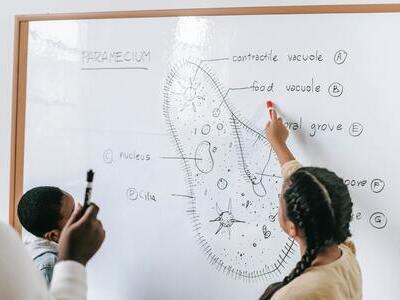 PARAMECIUM
contractile vacuole (A)
food vacuole (B)
oral grove (E)
(C) nucleus
(D) Cilia
(F)
(G)